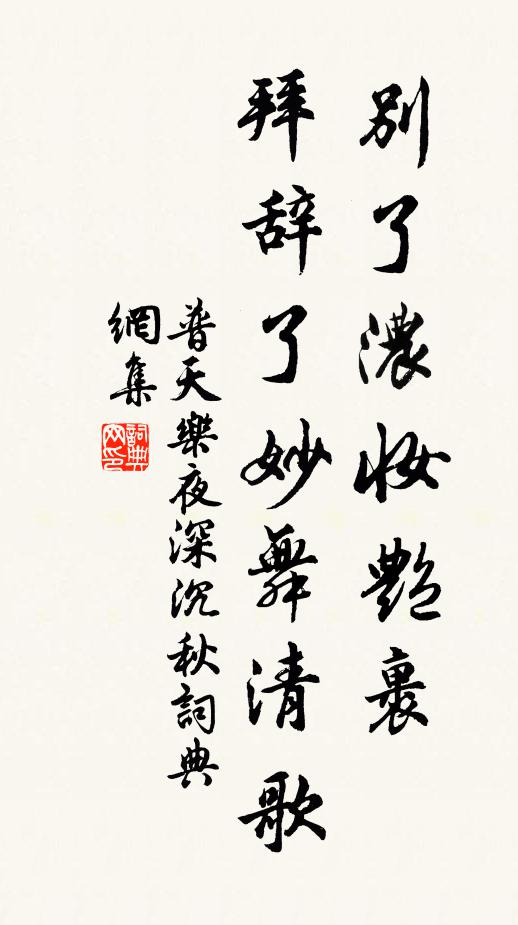 別了濃妝艷裹
拜辞了妙舞清歌
普天樂夜深沉秋詞典
網集
詞典
网印